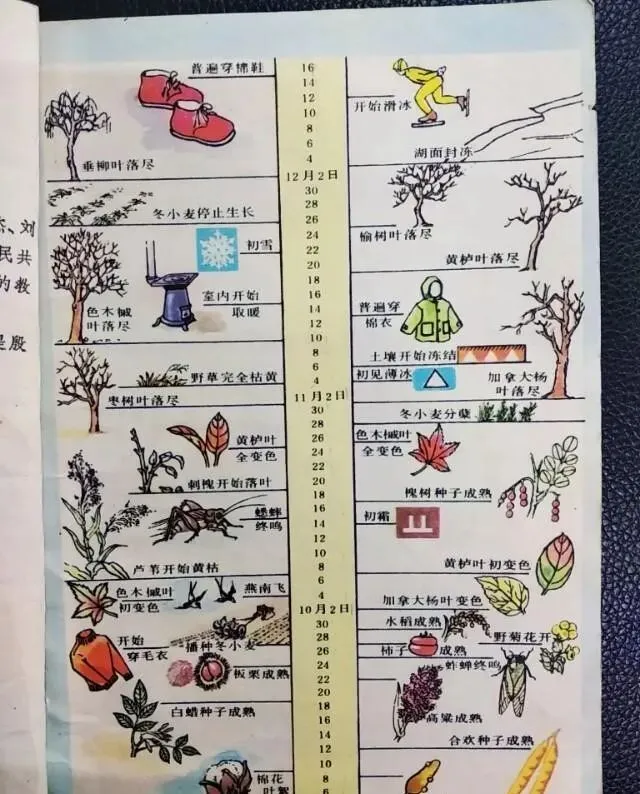 普遍穿棉鞋
16
14
12
10
8
6
4
12月2日
30
28
26
24
22
20
18
16
14
12
10
8
6
4
11月2日
30
28
26
24
22
20
18
16
14
12
10
8
6
4
10月2日
30
28
26
24
22
20
18
16
14
12
10
8
6
垂柳叶落尽
冬小麦停止生长
初雪
室内开始
取暖
色木槭
叶落尽
野草完全枯黄
枣树叶落尽
黄栌叶
全变色
刺槐开始落叶
蟋蟀
终鸣
芦苇开始黄枯
色木槭叶
初变色
燕南飞
开始
穿毛衣
播种冬小麦
板栗成熟
白蜡种子成熟
棉花
叶絮
开始滑冰
湖面封冻
榆树叶落尽
黄栌叶落尽
普遍穿
棉衣
土壤开始冻结
初见薄冰
加拿大杨
叶落尽
冬小麦分蘖
色木槭叶
全变色
槐树种子成熟
初霜
黄栌叶初变色
加拿大杨叶变色
水稻成熟
野菊花开
柿子
成熟
蚱蝉终鸣
高粱成熟
合欢种子成熟
、刘
民共
的教
是殷